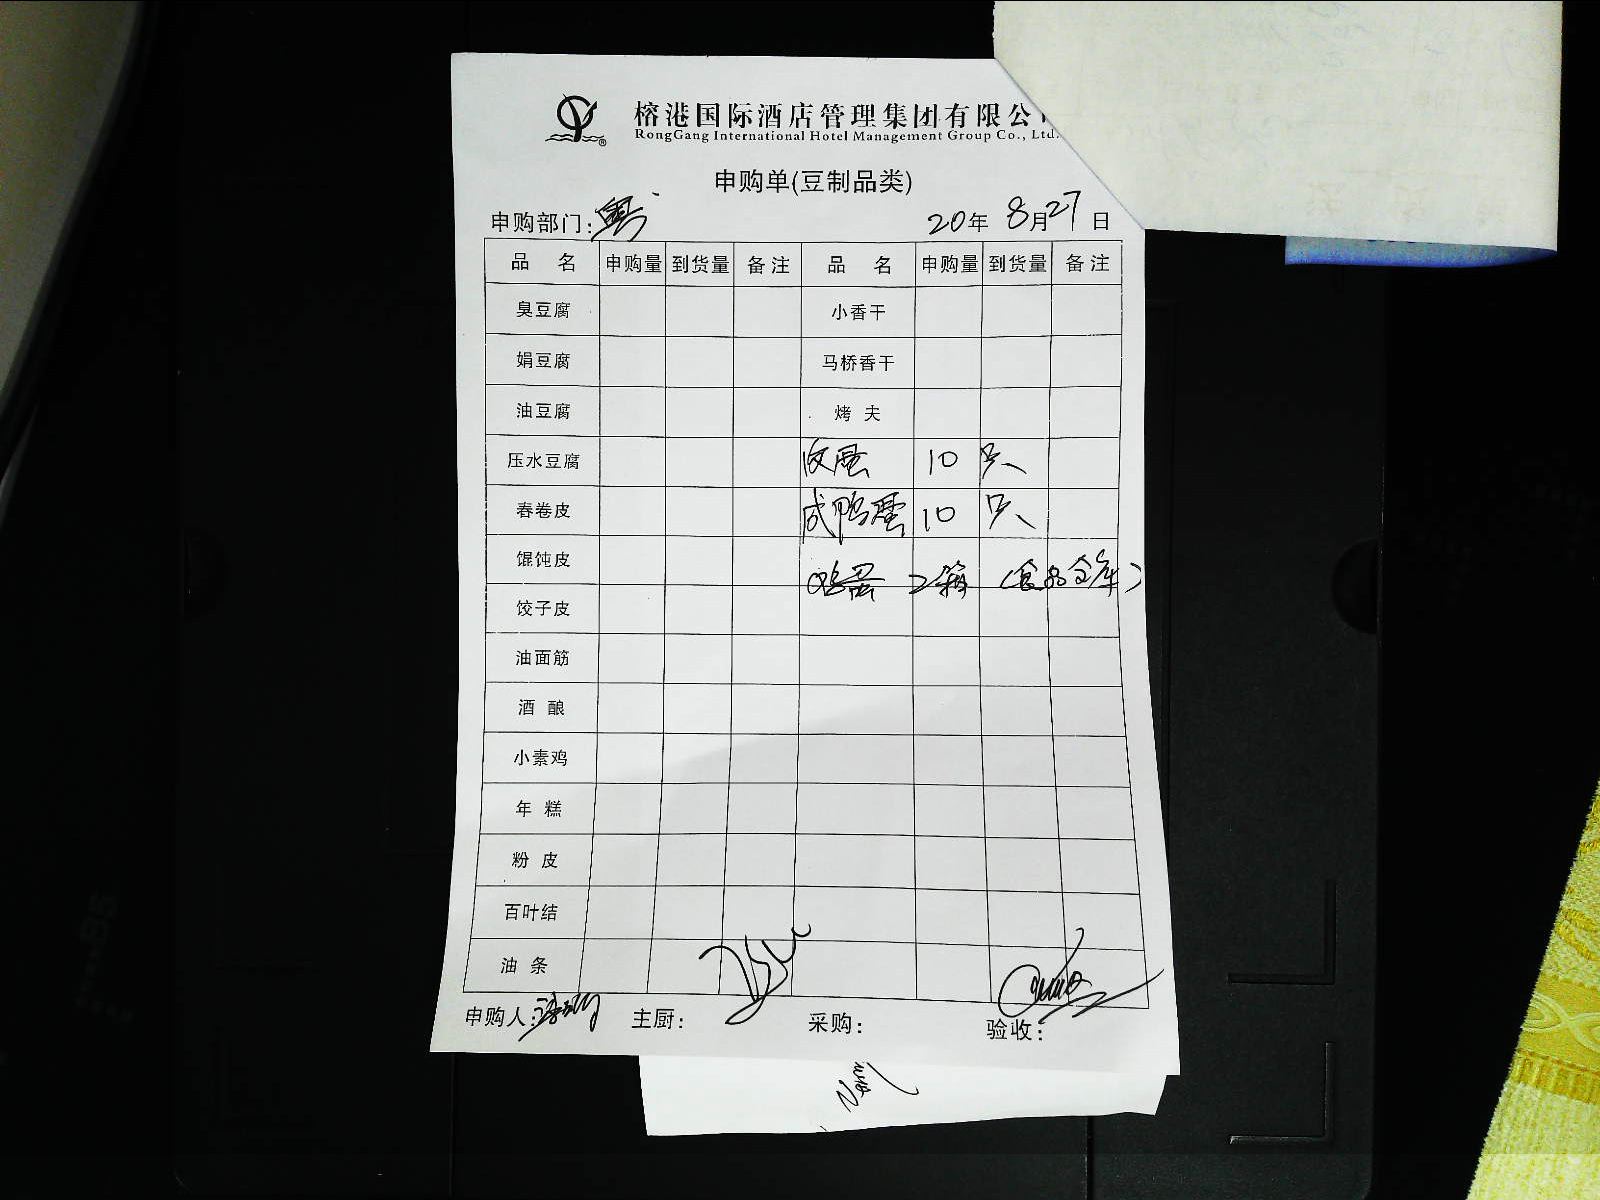 榕港国际酒店管理集团有限公
RongGang International Hotel Management Group Co., Ltd.
申购单(豆制品类)
申购部门：粤 20年 8月27日
品 名 申购量 到货量 备注 品 名 申购量 到货量 备注
臭豆腐 小香干
娟豆腐 马桥香干
油豆腐 烤 夫
压水豆腐 皮蛋 10 只
春卷皮 咸鸭蛋 10 只
馄饨皮 鸡蛋 2箱 (食品仓库)
饺子皮
油面筋
酒 酿
小素鸡
年 糕
粉 皮
百叶结
油 条
申购人： 主厨： 采购： 验收：